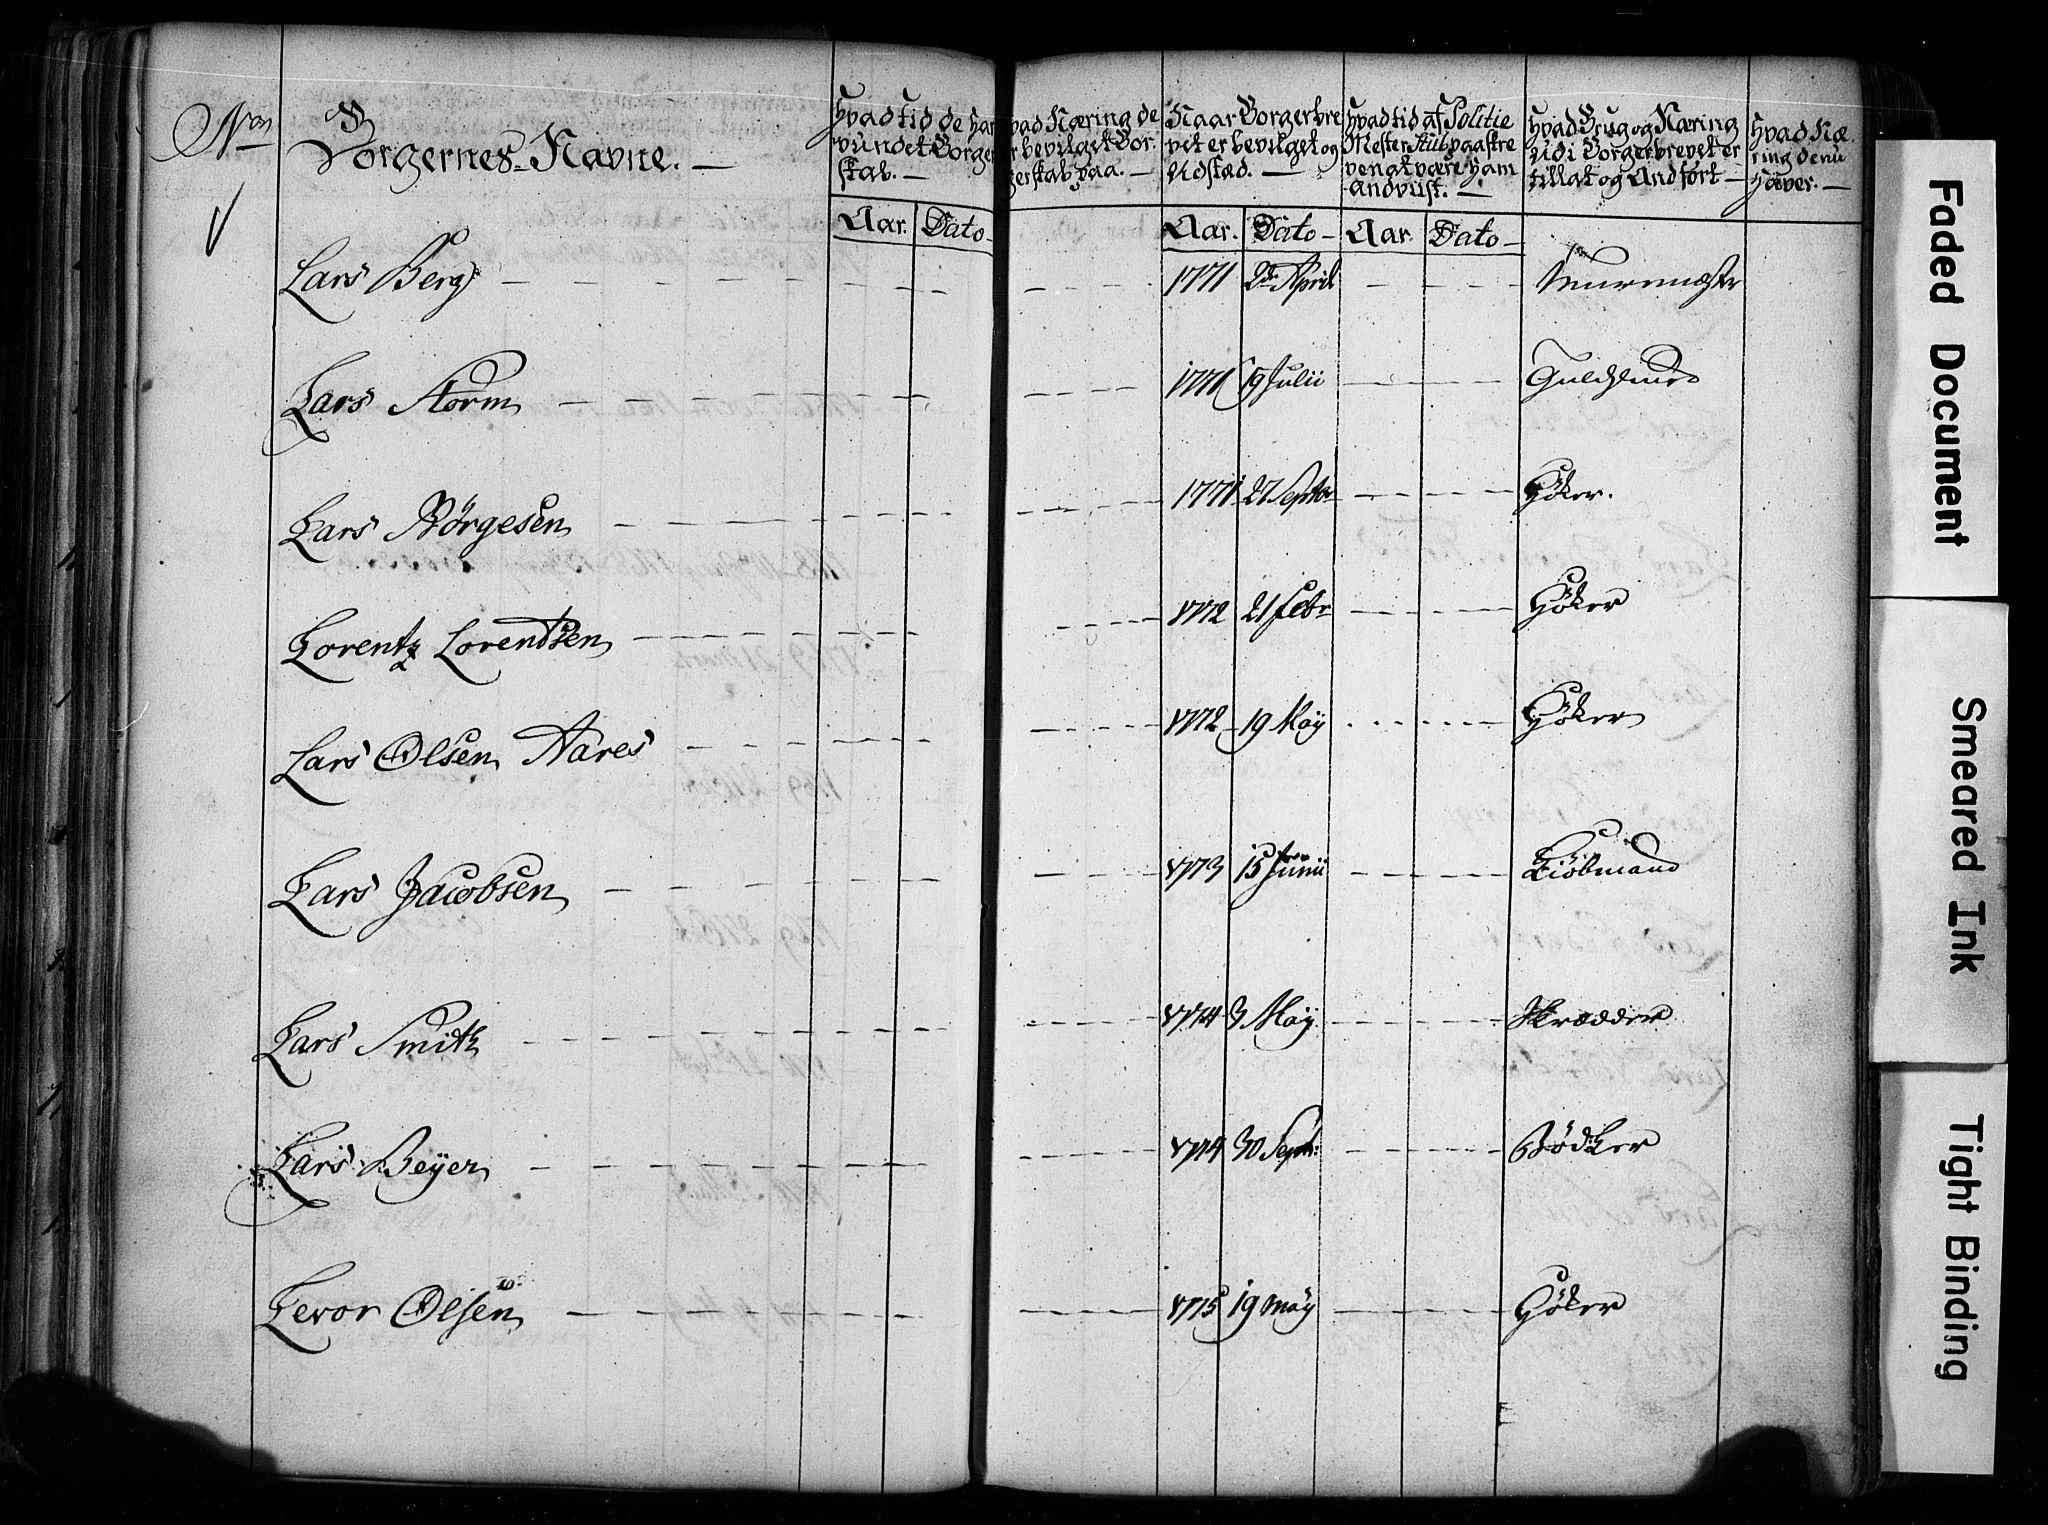 Borgernes Navne. —
Hvad tid de har
vundet Borger
skab. —
Hvad Næring de
er bevilget Bor-
gerskab paa. —
Naar Borgerbre
vet er bevilget og
Udstæd. —
Hvad tid af Politie
Mester Skul paaskre
ven at være ham
andviist. —
Hvad Brug og Næring
Udi Borgerbrevet er
tillat og Andført —
Hvad Næ-
ring de nu
haver. —
Aar. Dato Aar. Dato Aar. Dato
Lars Berg 1771 2de April Muurmester
Lars Storm 1771 19 Julii Guldsmed
Lars Børgesen 1771 27 Septbr Høker.
Lorentz Lorendsen 1772 21 Febr Høker
Lars Olsen Aares 1772 19 May Høker
Lars Jacobsen 1773 15 Junii Kiøbmand
Lars Smith 1774 3 May Skrædder
Lars Beyer 1774 30 Septr: Bødker
Levor Olsen 1775 19 may Høker
Faded Document
Smeared Ink
Tight Binding